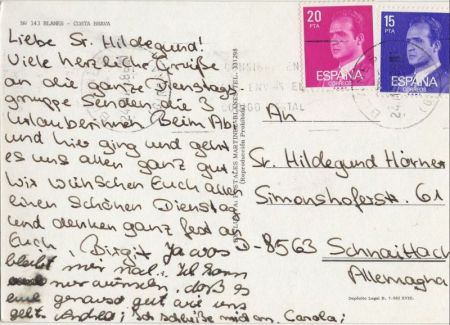 Nº 143 BLANES - COSTA BRAVA
Liebe Sr. Hildegund!
Viele herzliche Grüße
an die ganze Dienstag-
gruppe Senden die 3
Urlauberinnen. Beim
und hier ging und geht
es uns allen ganz gut
Wir wünschen Euch allen
einen schönen Dienstag
und denken ganz fest an
Euch, Birgit Ja was
bleibt mir nal. Ich kann
nur wünschen, daß es
Euch genauso gut wie uns
geht. Andrea; Ich scheiße mich an. Carola;
20
PTA
ESPAÑA
CORREOS
15
PTA
ESPAÑA
CORREOS
POSTAL
(Reproducción Prohibida)
An
Sr. Hildegund Härner
Simonshoferstr. 61
D-8563 Schnaittach
Allemagna
Depósito Legal B.